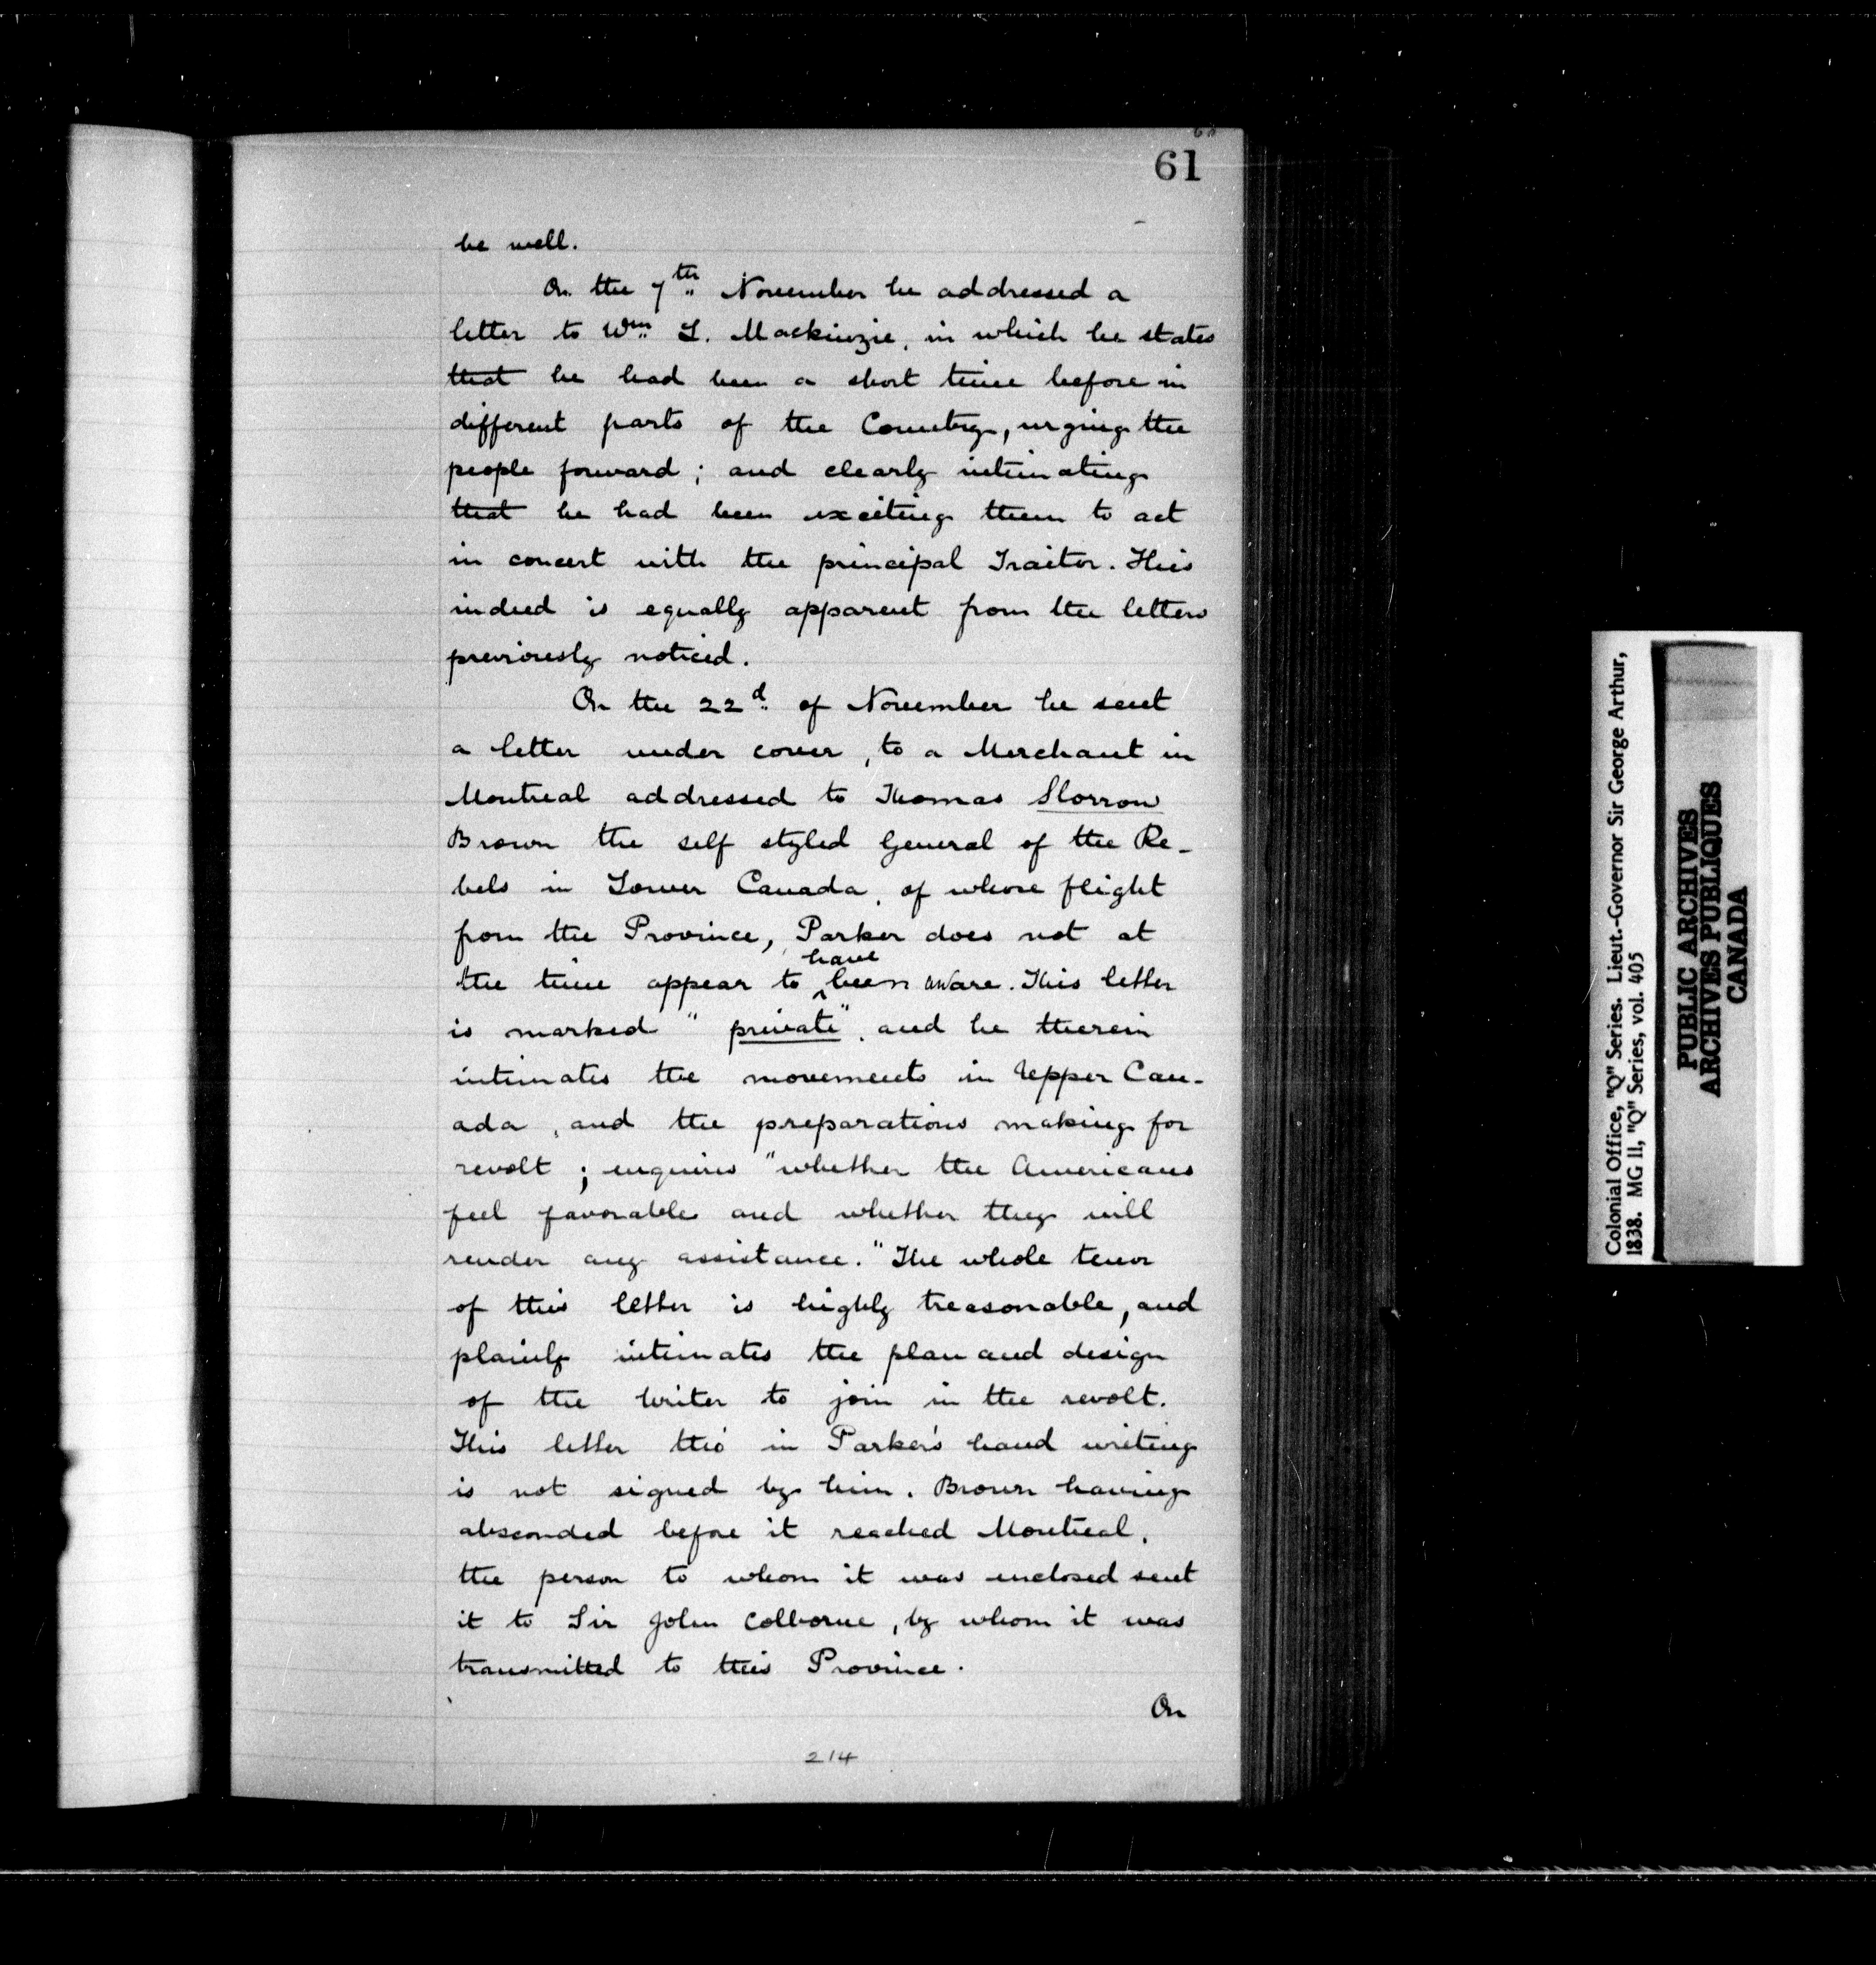 61
be well.
On the 7th November he addressed a
letter to Wm L. Mackinzie, in which he states
that he had been a short time before in
different parts of the Country, urging the
people forward; and clearly intimating
that he had been exciting them to act
in concert with the principal Traitor. This
indeed is equally apparent from the letters
previously noticed.
On the 22d of November he sent
a letter under cover, to a Merchant in
Montreal addressed to Thomas Storrow
Brown the self styled General of the Re-
bels in Lower Canada, of whose flight
from the Province, Parker does not at
the time appear to have been aware. This letter
is marked "private", and he therein
intimates the movements in Upper Can-
ada, and the preparations making for
revolt; enquires "whether the Americans
feel favorable and whether they will
render any assistance." The whole tenor
of this letter is highly treasonable, and
plainly intimates the plan and design
of the writer to join in the revolt.
This letter tho' in Parker's hand writing
is not signed by him. Brown having
absconded before it reached Montreal,
the person to whom it was enclosed sent
it to Sir John Colborne, by whom it was
transmitted to this Province.
On
214
Colonial Office, "Q" Series. Lieut.-Governor Sir George Arthur,
1838. MG 11, "Q" Series, vol. 405
PUBLIC ARCHIVES
ARCHIVES PUBLIQUES
CANADA